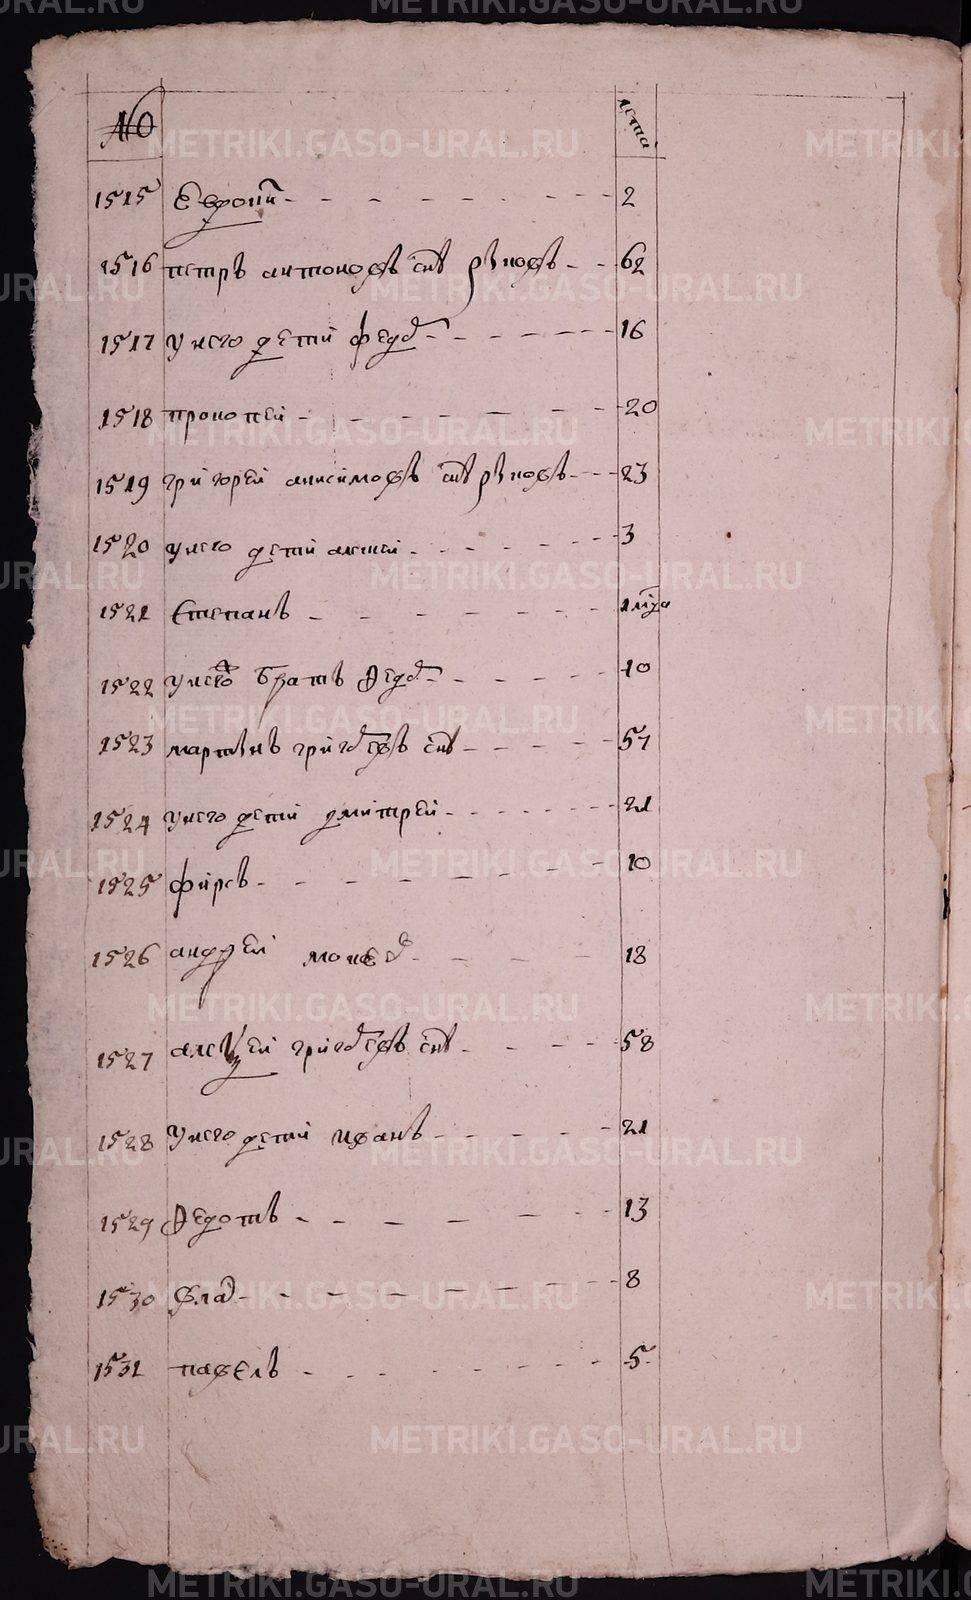 № лета
1515 Евфони 2
1516 петръ антоновъ снъ 62
1517 у него дети федо 16
1518 прокопей 20
1519 григорей анисимовъ снъ 23
1520 у него дети алексей 3
1521 Степанъ 1
1522 у него братъ Ѳедо 10
1523 мартынъ григоревъ снъ 57
1524 у него дети дмитрей 21
1525 фирсъ 10
1526 андрей 18
1527 алексей григоревъ снъ 58
1528 у него дети иванъ 21
1529 Ѳедотъ 13
1530 влас 8
1531 павелъ 5
METRIKI.GASO-URAL.RU